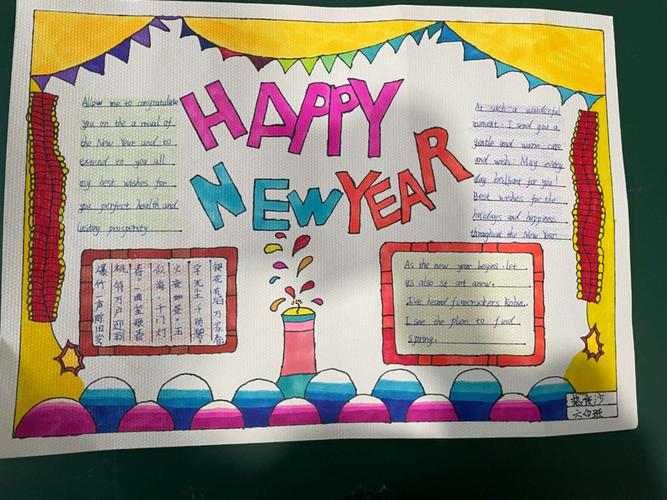 HAPPY
NEW YEAR
Allow me to congratulate
you on the a rival of
the New Year and to
extend to you all
my best wishes for
you perfect health and
lasting prosperity
At such a wonderful
moment. I send you a
gentle and warm care
and wish. May every
day brilliant for you!
Best wishes for the
holidays and happiness
throughout the New Year
爆竹一声除旧岁
桃符万户迎新
春。一曲笙歌春
似海。千门灯
火夜如昼。玉
宇无尘千顷碧
银花有焰万家春
As the new year begins. let
us also st art anew.
I've heard firecruckers Robin.
I see the plum to find
spring.